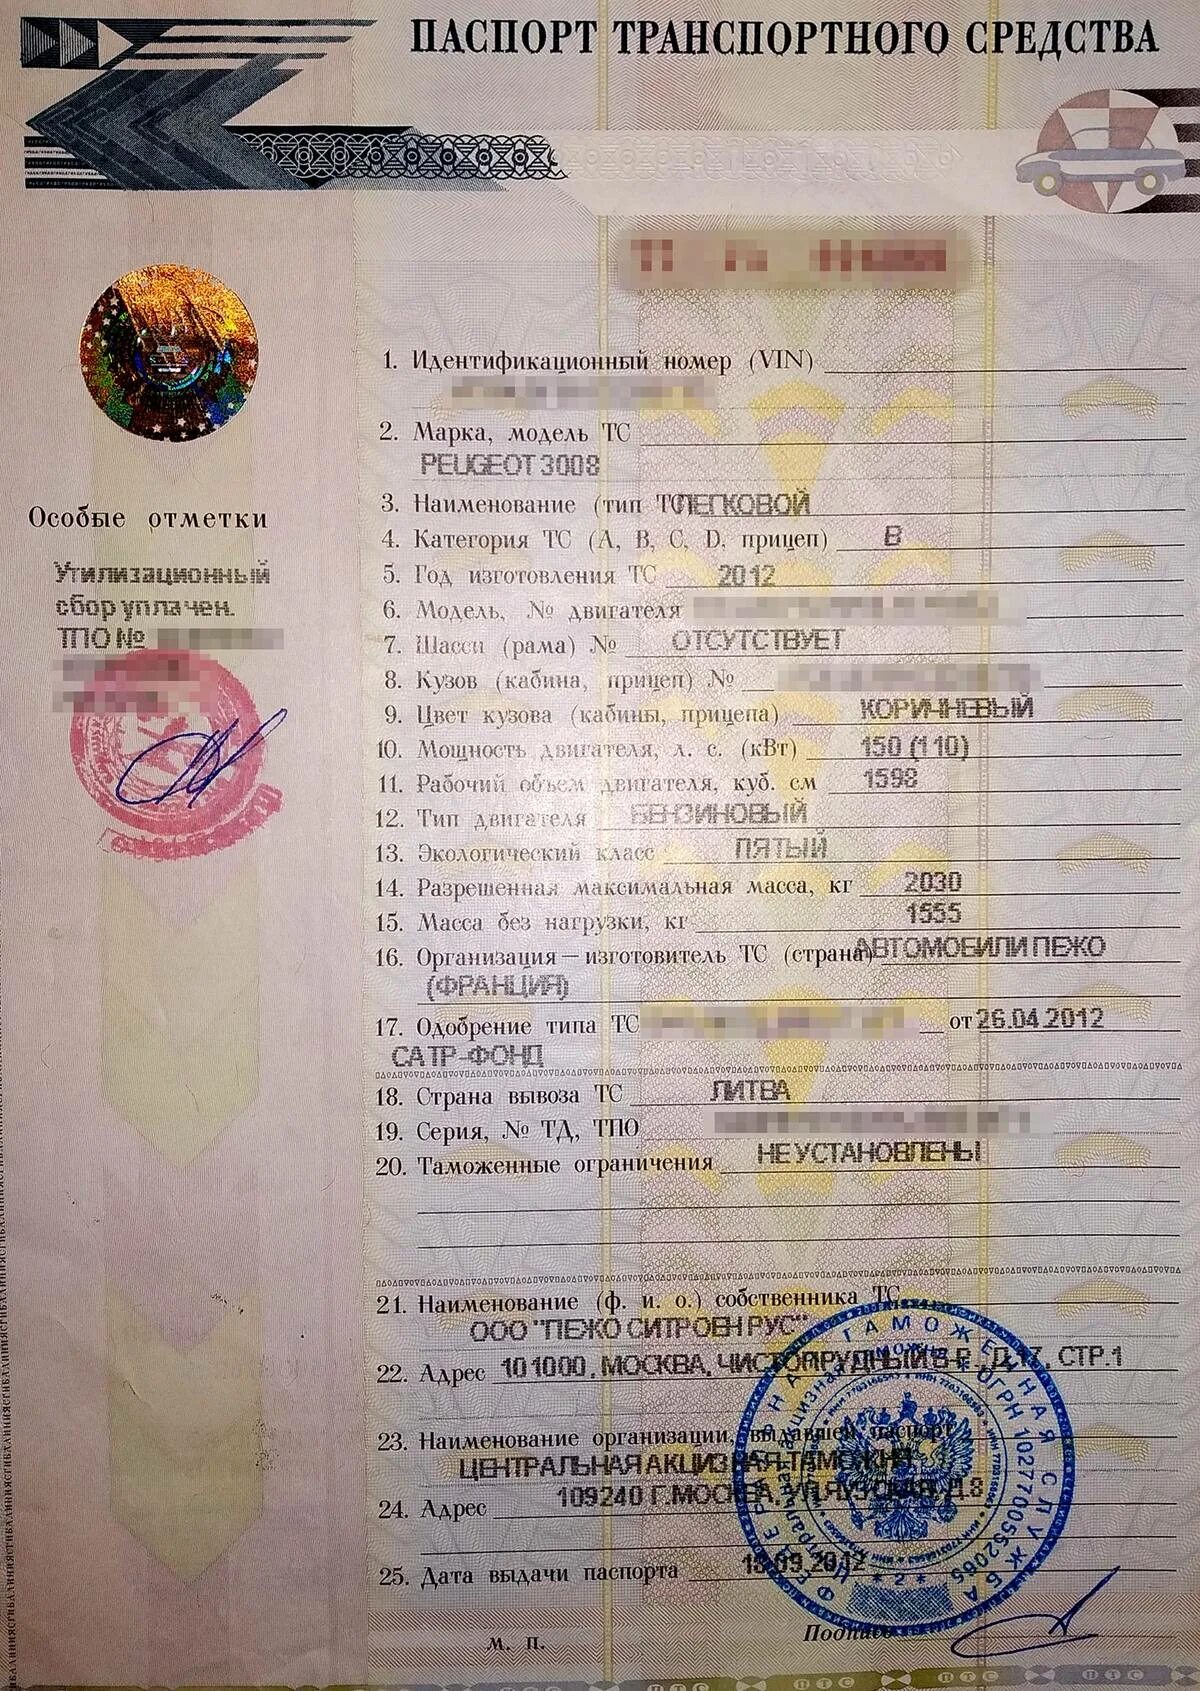 ПАСПОРТ ТРАНСПОРТНОГО СРЕДСТВА
Особые отметки
Утилизационный
сбор уплачен.
ТПО №
1. Идентификационный номер (VIN)
2. Марка, модель ТС
PEUGEOT 3008
3. Наименование (тип ТС) ЛЕГКОВОЙ
4. Категория ТС (А, В, С, D, прицеп) B
5. Год изготовления ТС 2012
6. Модель, № двигателя
7. Шасси (рама) № ОТСУТСТВУЕТ
8. Кузов (кабина, прицеп) №
9. Цвет кузова (кабины, прицепа) КОРИЧНЕВЫЙ
10. Мощность двигателя, л. с. (кВт) 150 (110)
11. Рабочий объем двигателя, куб. см 1598
12. Тип двигателя БЕНЗИНОВЫЙ
13. Экологический класс ПЯТЫЙ
14. Разрешенная максимальная масса, кг 2030
15. Масса без нагрузки, кг 1555
16. Организация—изготовитель ТС (страна) АВТОМОБИЛИ ПЕЖО
(ФРАНЦИЯ)
17. Одобрение типа ТС от 26.04.2012
САТР-ФОНД
18. Страна вывоза ТС ЛИТВА
19. Серия, № ТД, ТПО
20. Таможенные ограничения НЕ УСТАНОВЛЕНЫ
21. Наименование (ф. и. о.) собственника ТС
ООО "ПЕЖО СИТРОЕН РУС"
22. Адрес 101000, МОСКВА, ЧИСТОПРУДНЫЙ Б-Р., Д.17, СТР.1
23. Наименование организации, выдавшей паспорт
ЦЕНТРАЛЬНАЯ АКЦИЗНАЯ ТАМОЖНЯ
24. Адрес 109240 Г.МОСКВА, УЛ.ЯУЗСКАЯ, Д.8
25. Дата выдачи паспорта 18.09.2012
ФЕДЕРАЛЬНАЯ ТАМОЖЕННАЯ СЛУЖБА
Центральная акцизная таможня * ОГРН 1027700552065
ИНН 7703166563
* 2 *
М. П.
Подпись
ПТС ПТС ПТС